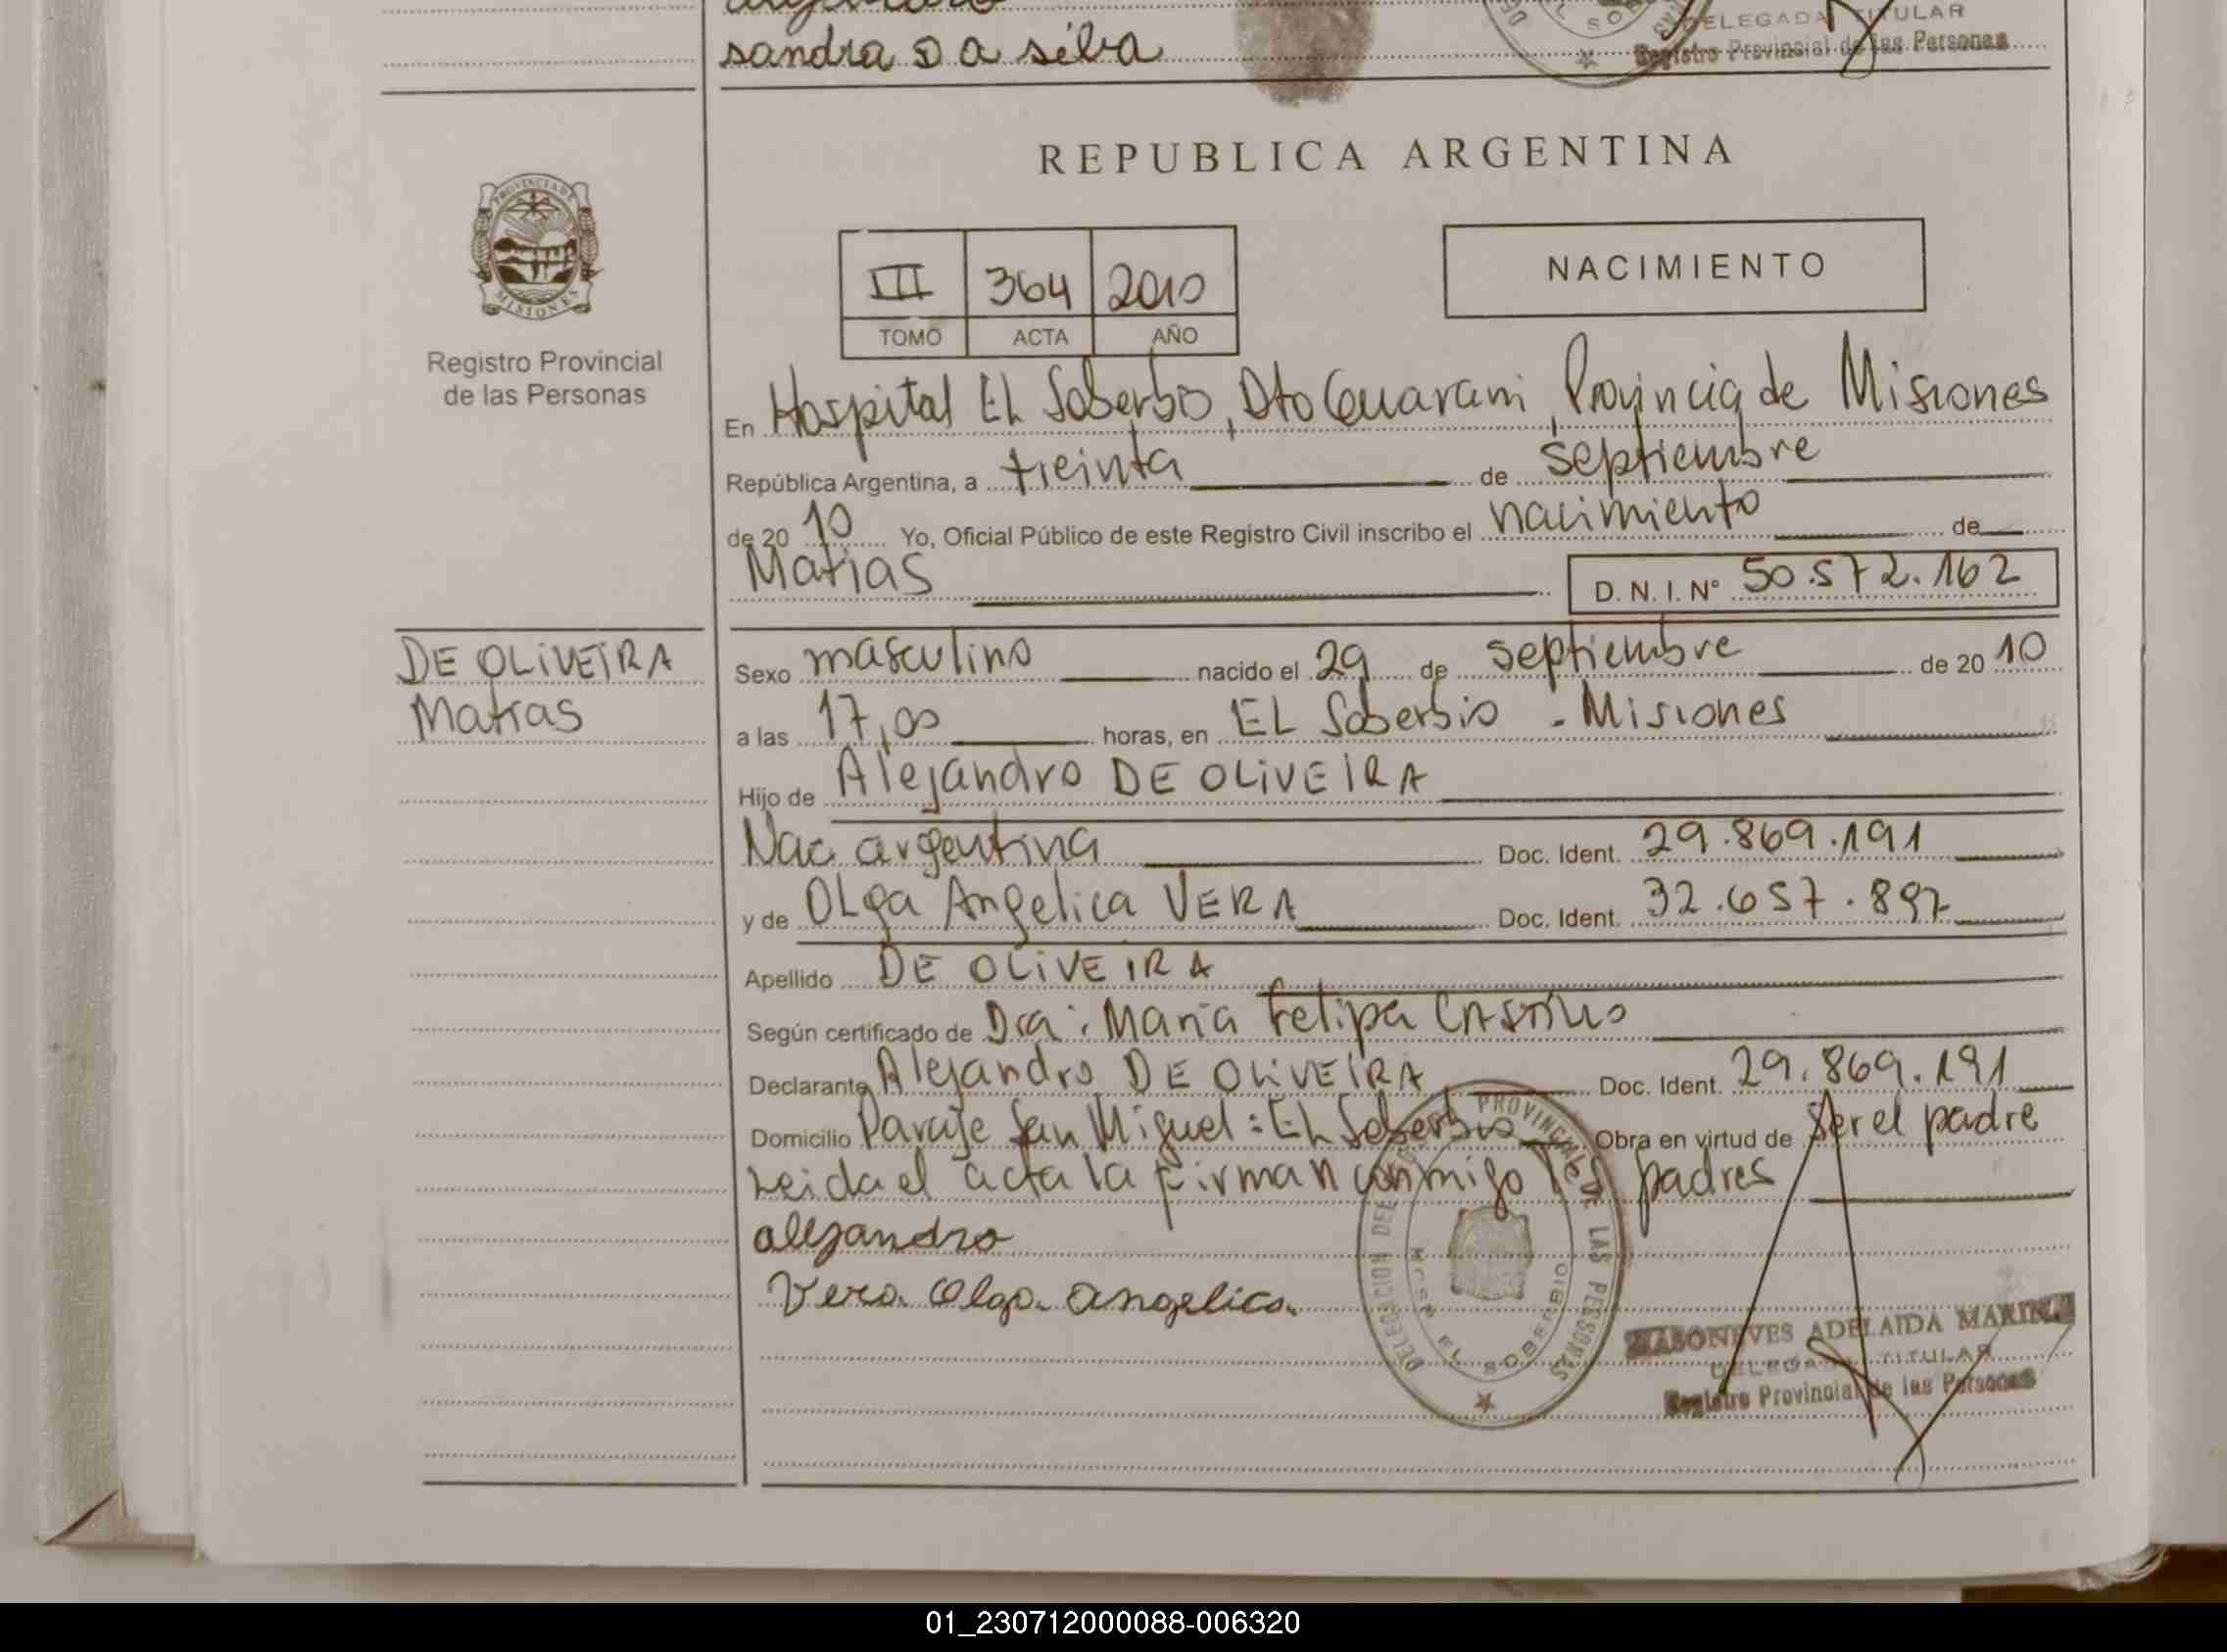 sandra D a silva
DELEGADA TITULAR
Registro Provincial de las Personas
REPUBLICA ARGENTINA
PROVINCIA DE
MISIONES
Registro Provincial
de las Personas
III 364 2010
TOMO ACTA AÑO
NACIMIENTO
En Hospital EL Soberbio, Dto Guarani, Provincia de Misiones
República Argentina, a treinta de septiembre
de 20 10 Yo, Oficial Público de este Registro Civil inscribo el nacimiento de
Matias D. N. I. N° 50.572.162
DE OLIVEIRA
Matias
Sexo masculino nacido el 29 de septiembre de 20 10
a las 17,00 horas, en EL Soberbio - Misiones
Hijo de Alejandro DE OLIVEIRA
Nac argentina Doc. Ident. 29.869.191
y de OLga Angelica VERA Doc. Ident. 32.657.897
Apellido DE OLIVEIRA
Según certificado de Dra: Maria Felipa CASTILLO
Declarante Alejandro DE OLIVEIRA Doc. Ident. 29.869.191
Domicilio Paraje San Miguel: EL Soberbio Obra en virtud de ser el padre
Leida el acta la firman conmigo los padres
alejandro
Vera Olga angelica
DELEGACION DEL PROVINCIAL DE LAS PERSONAS
EL SOBERBIO
ADELAIDA
DELEGADA TITULAR
Registro Provincial de las Personas
01_230712000088-006320